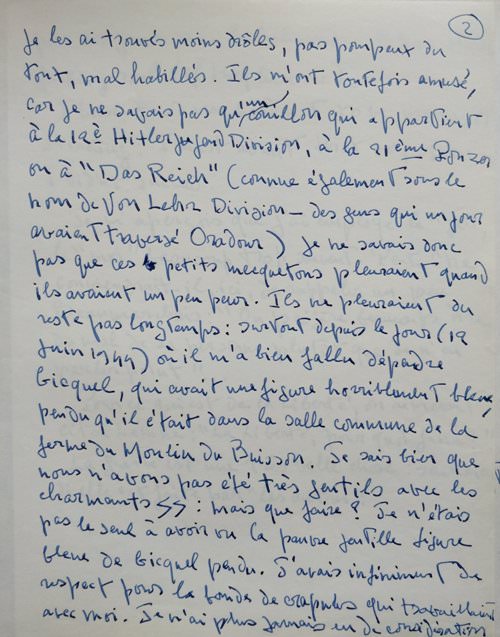 2
Je les ai trouvés moins drôles, pas pompeux du
tout, mal habillés. Ils m'ont toutefois amusé,
car je ne savais pas qu'un couillon qui appartient
à la 12è Hitlerjugend Division, à la 21ème Panzer
ou à "Das Reich" (connue également sous le
nom de Von Lehr Division – des gens qui un jour
avaient traversé Oradour) je ne savais donc
pas que ces petits mecquetons pleuraient quand
ils avaient un peu peur. Ils ne pleuraient du
reste pas longtemps : surtout depuis le jour (12
Juin 1944) où il m'a bien fallu dépendre
Bicquel, qui avait une figure horriblement bleue,
pendu qu'il était dans la salle commune de la
ferme du Moulin du Buisson. Je sais bien que
nous n'avons pas été très gentils avec les
charmants SS : mais que faire ? Je n'étais
pas le seul à avoir vu la pauvre gentille figure
bleue de Bicquel pendu. J'avais infiniment de
respect pour la bande de crapules qui travaillaient
avec moi. Je n'ai plus jamais eu de considération